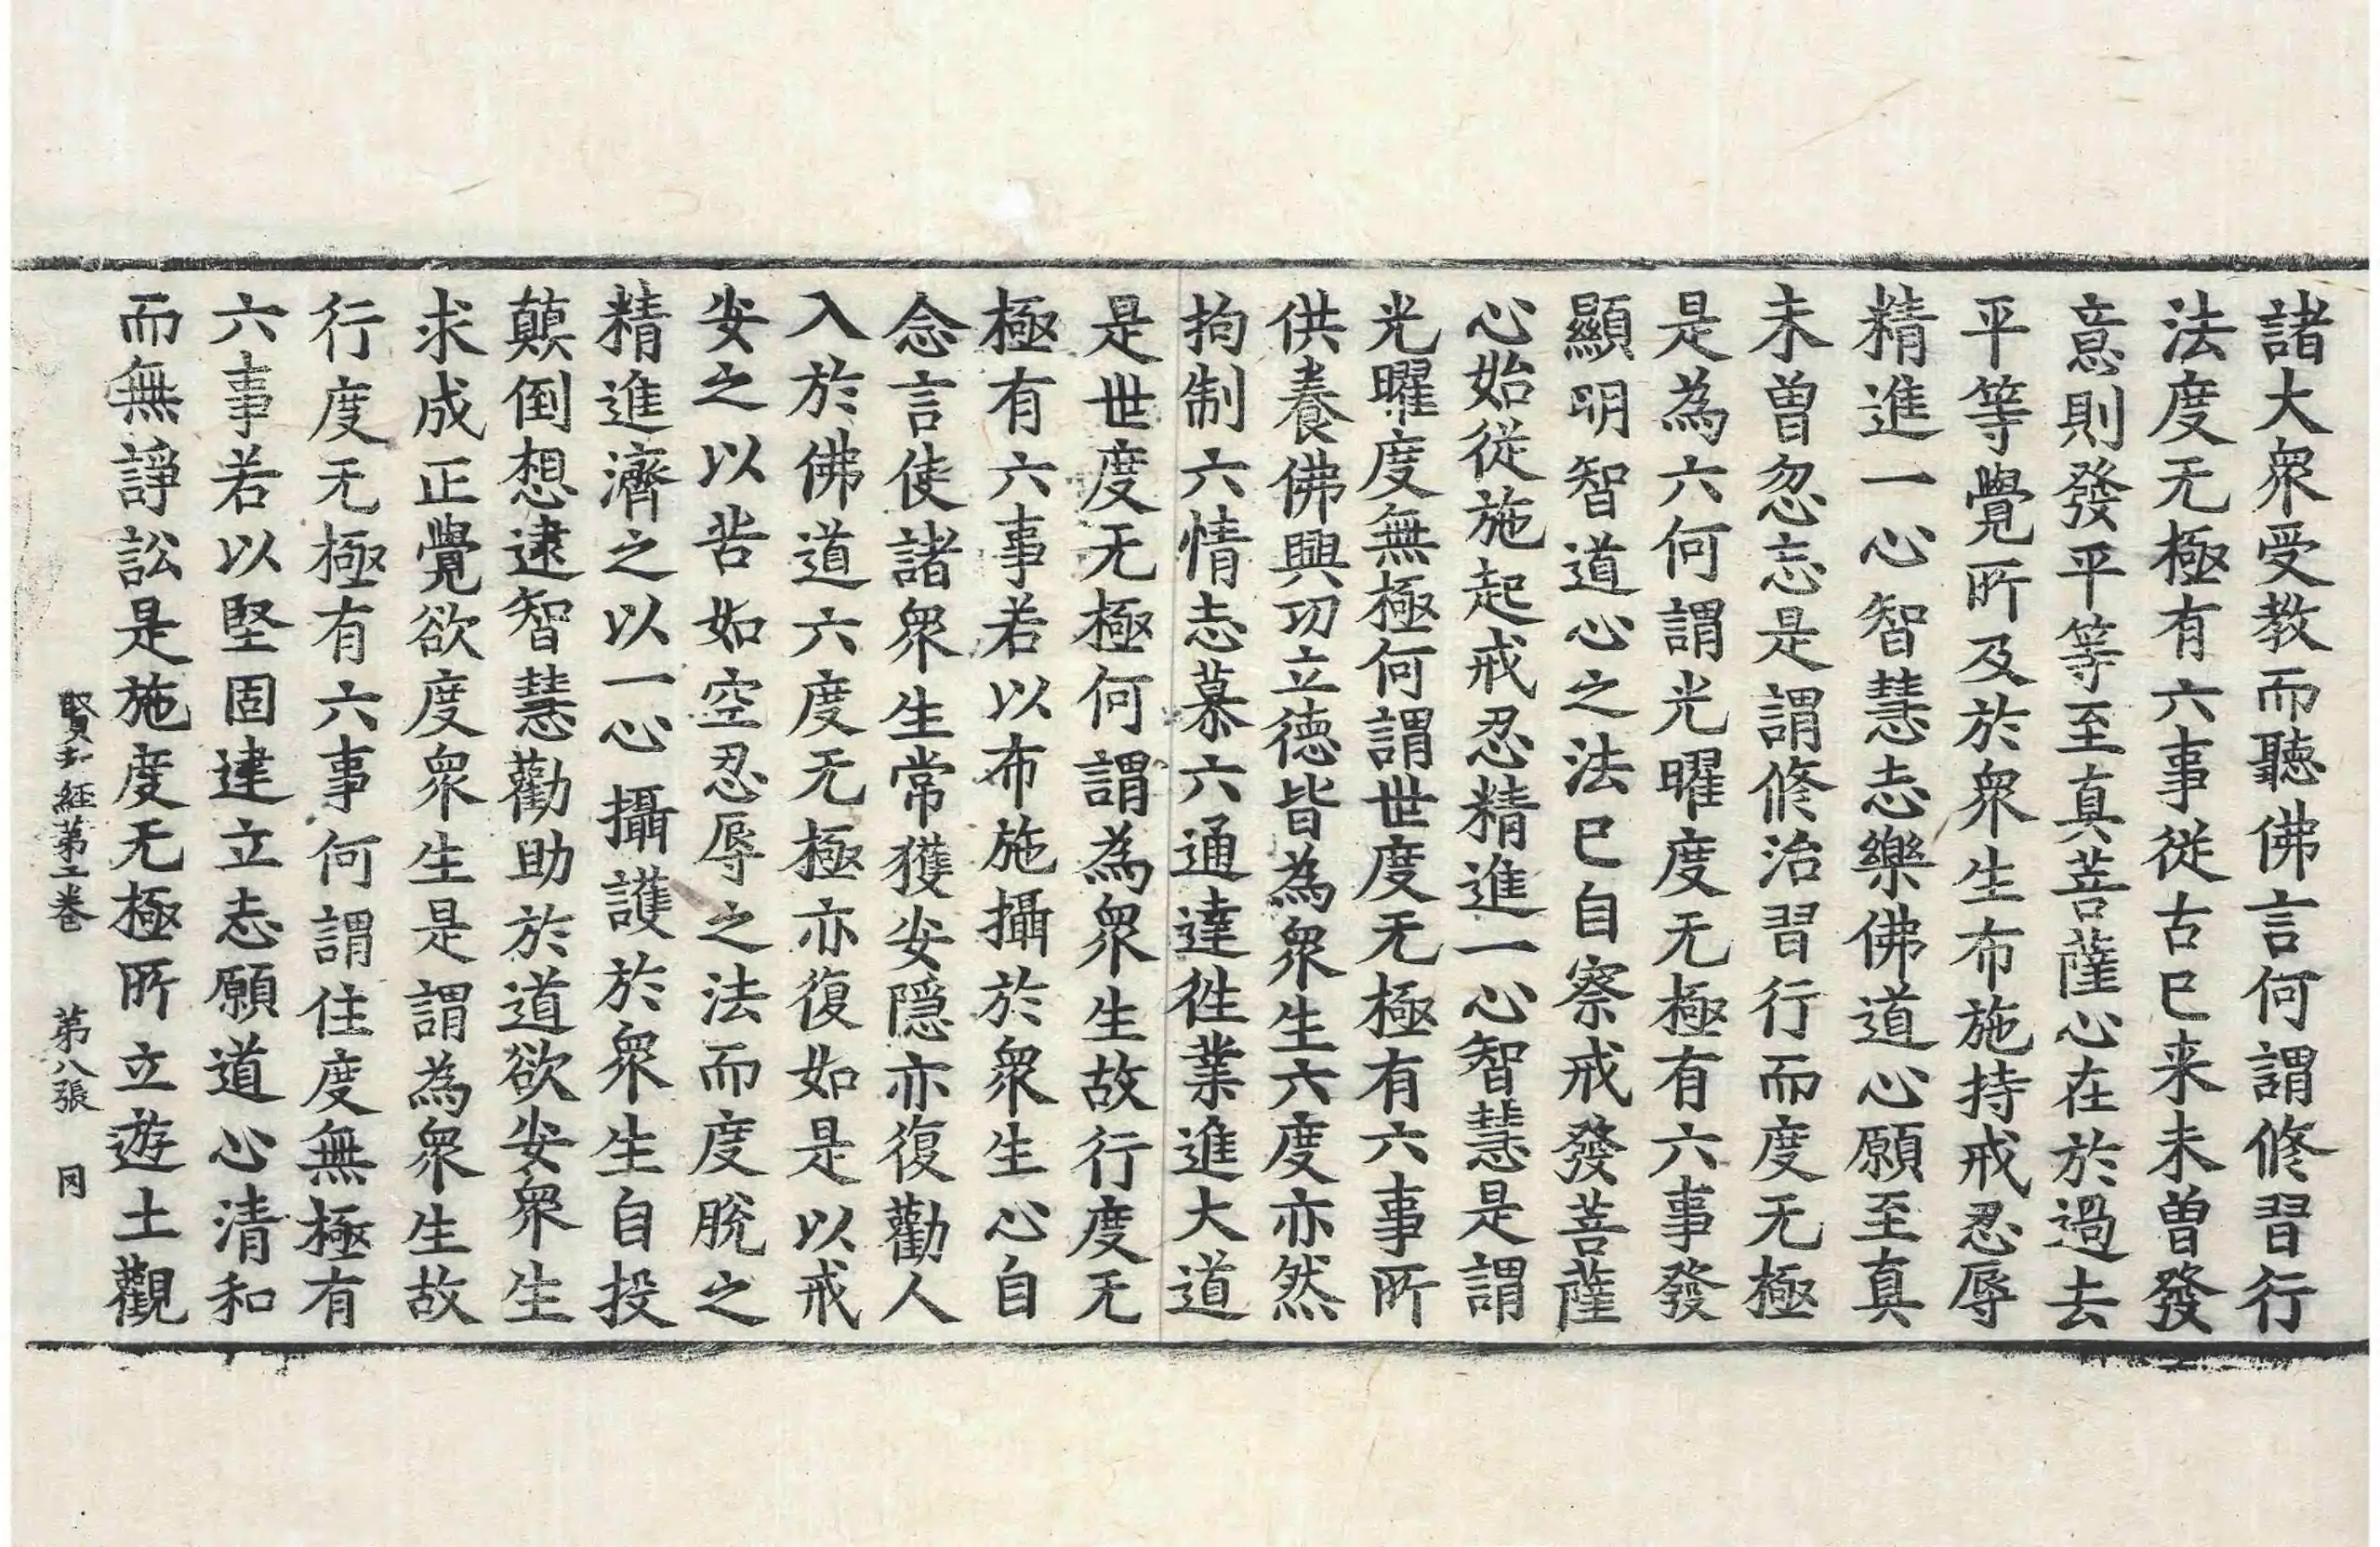 諸大衆受教而聽佛言何謂修習行
法度无極有六事從古已来未曽發
意則發平等至真菩薩心在於過去
平等覺所及於衆生布施持戒忍辱
精進一心智慧志樂佛道心願至真
未曽忽忘是謂修治習行而度无極
是為六何謂光曜度无極有六事發
顯明智道心之法已自察戒發菩薩
心始從施起戒忍精進一心智慧是謂
光曜度無極何謂世度无極有六事所
供養佛興功立德皆為衆生六度亦然
拘制六情志慕六通達徃業進大道
是世度无極何謂為衆生故行度无
極有六事若以布施攝於衆生心自
念言使諸衆生常獲安隱亦復勸人
入於佛道六度无極亦復如是以戒
安之以苦如空忍辱之法而度脫之
精進濟之以一心攝護於衆生自投
顛倒想逮智慧勸助於道欲安衆生
求成正覺欲度衆生是謂為衆生故
行度无極有六事何謂住度無極有
六事若以堅固建立志願道心清和
而無諍訟是施度无極所立遊土觀
賢劫經第二卷 第八張 罔